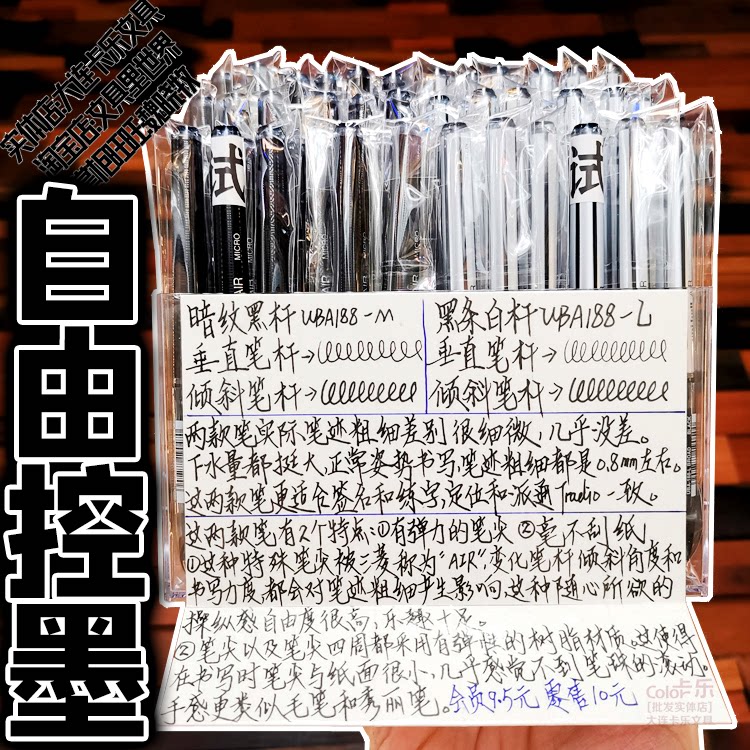 实体店:大连卡乐文具
淘宝店:文具里世界
自由控墨
试
试
MICRO
AIR
MICRO
AIR
暗纹黑杆UBA188-M
垂直笔杆→
倾斜笔杆→
黑条白杆UBA188-L
垂直笔杆→
倾斜笔杆→
两款笔实际笔迹粗细差别很细微,几乎没差。
下水量都挺大,正常姿势书写,笔迹粗细都是0.8mm左右。
这两款笔更适合签名和练字,定位和派通Tradio一致。
这两款笔有2个特点:①有弹力的笔尖 ②毫不刮纸
①这种特殊笔尖被三菱称为“AIR”,变化笔杆倾斜角度和
书写力度,都会对笔迹粗细产生影响,这种随心所欲的
操纵感自由度很高,乐趣十足。
②笔尖以及笔尖四周都采用有弹性的树脂材质。这使得
在书写时笔尖与纸面很小,几乎感觉不到笔珠的滚动。
手感更类似毛笔和秀丽笔。会员9.5元 零售10元
Color卡乐
[批发实体店]
大连卡乐文具